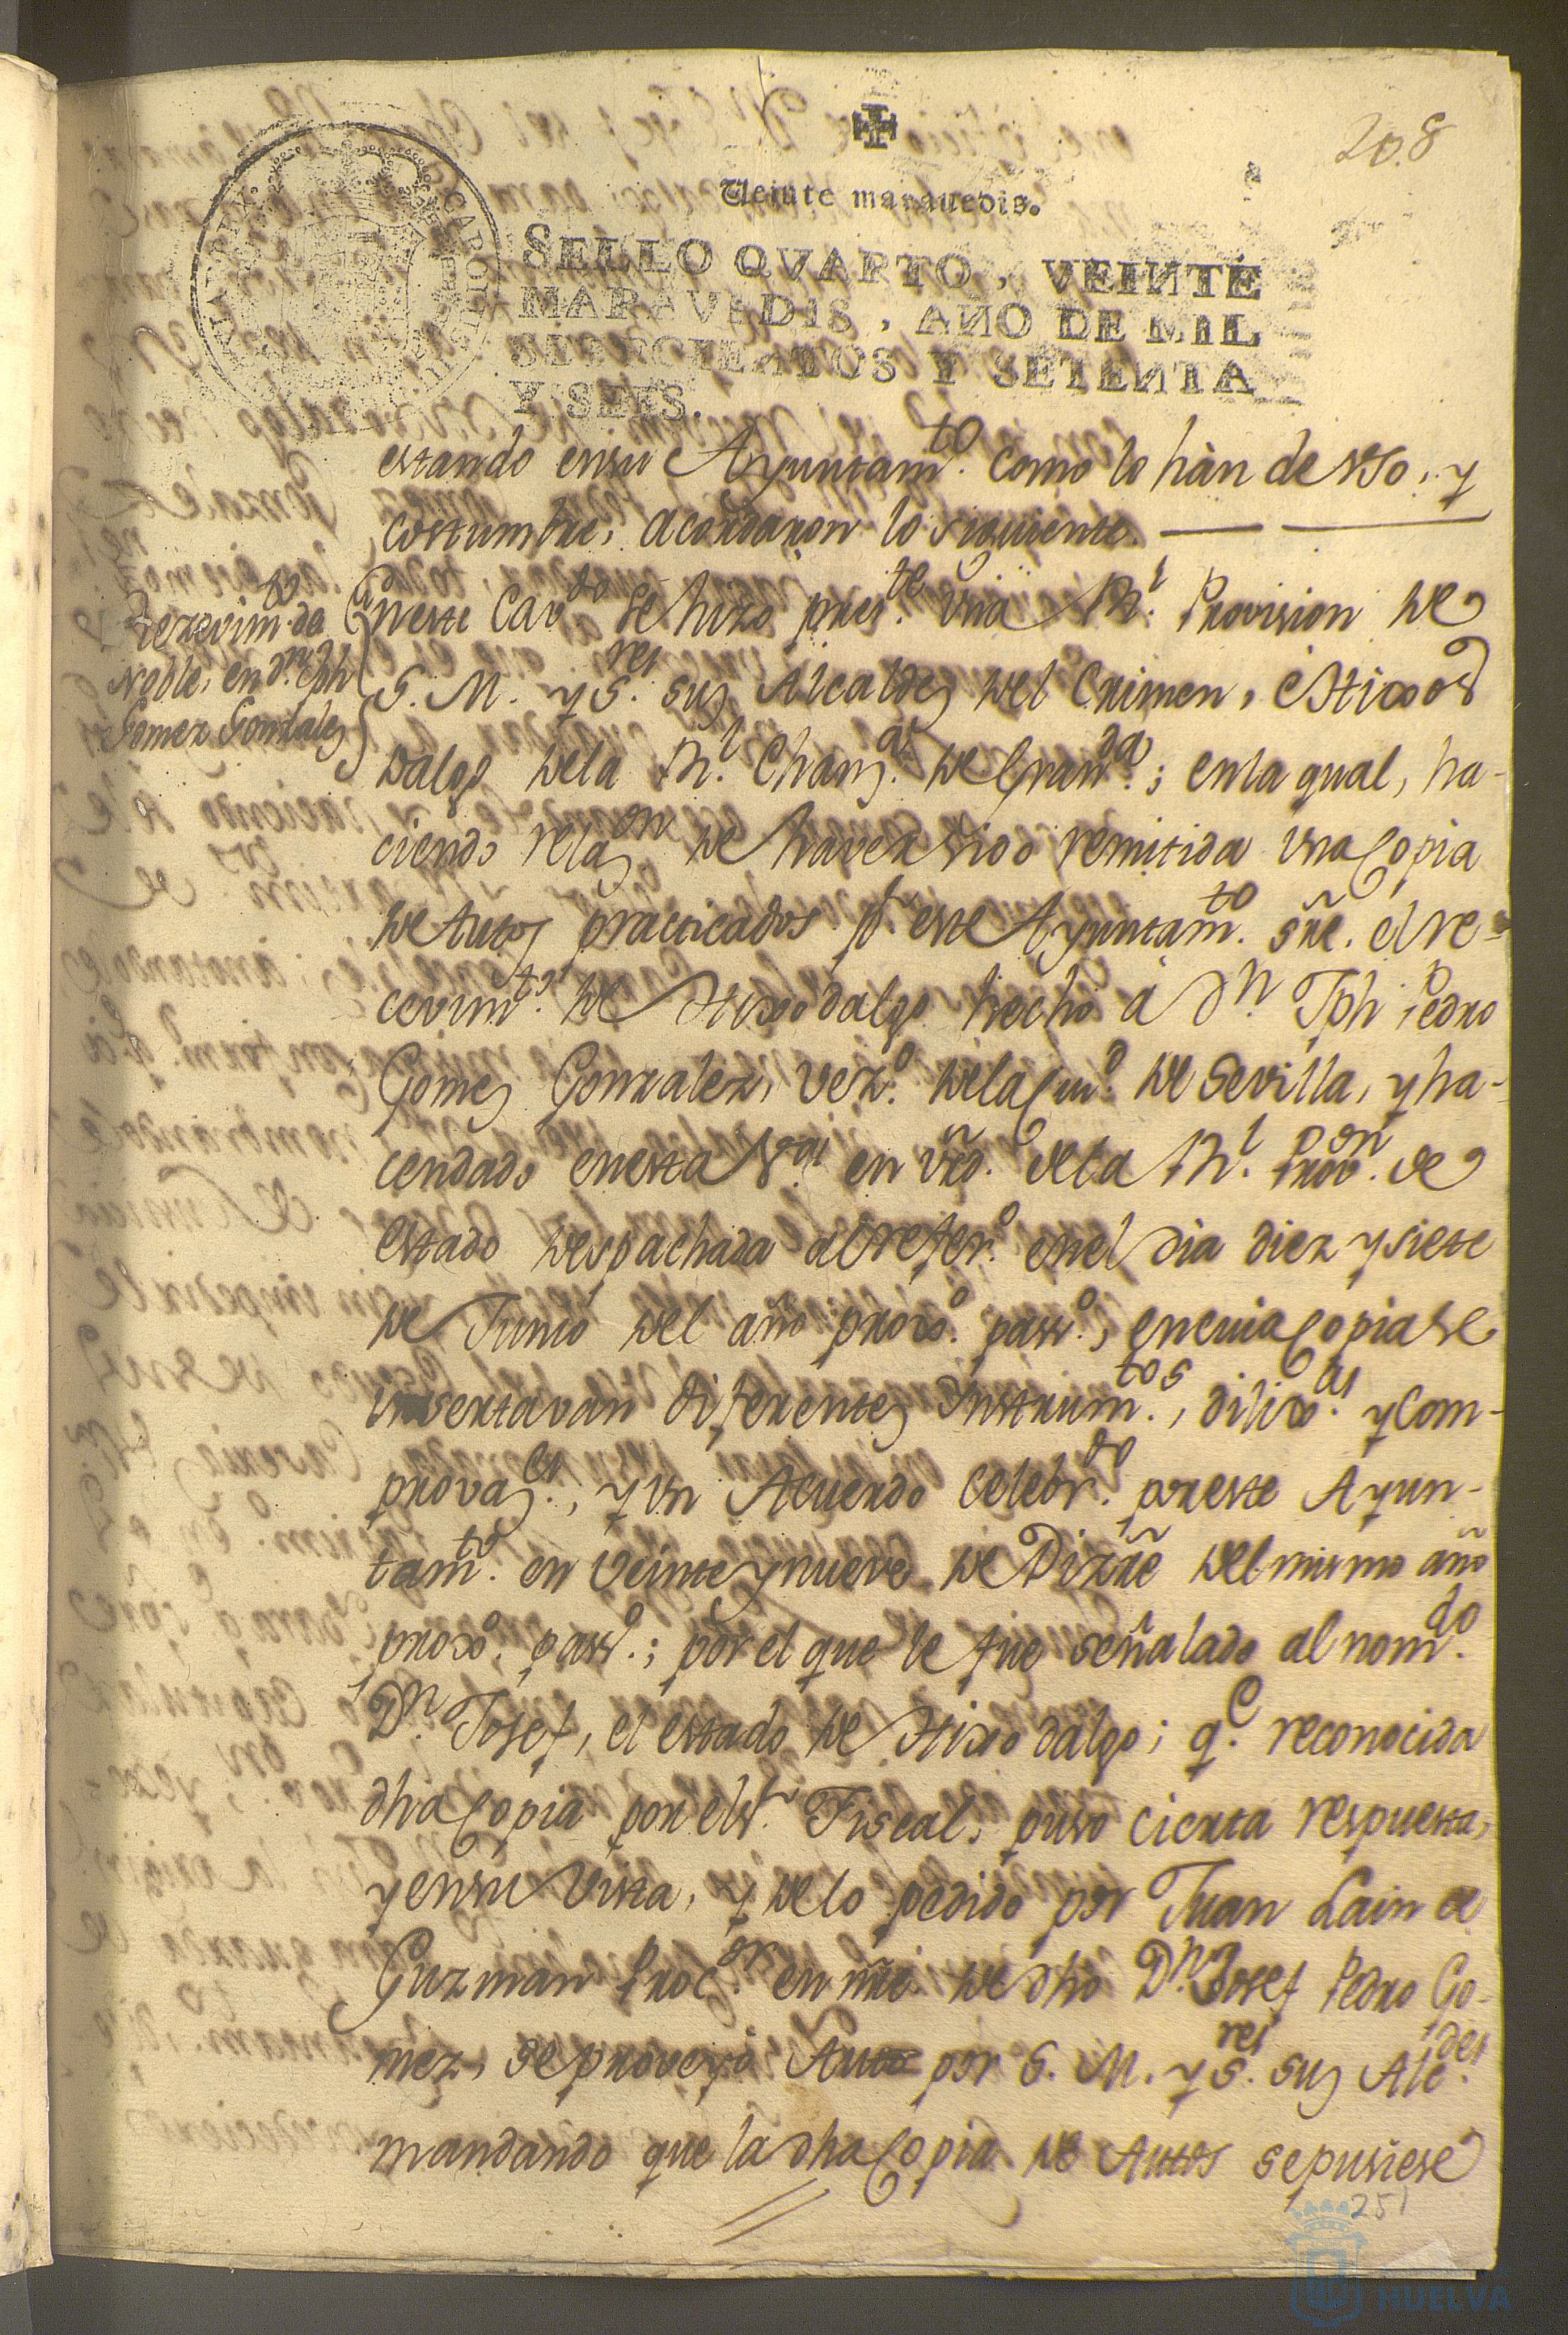 208
Veinte maravedis.
SELLO QVARTO, VEINTE
MARAVEDIS, AÑO DE MIL
SETECIENTOS Y SETENTA
Y SEIS.
estando ensu Ayuntamto. como lo hàn de vso, y
costumbre, acordaron lo siguiente.
Rezevimto. de
Noble, en dn. Jph
Gomez Gonzalez
Eneste Cavdo se hizo preste vna Rl. Provision de
S. M. y Sres. sus Alcaldes del Crimen, è Hixos
dalgo dela Rl. Chanza. de Granda.; enla qual, ha-
ciendo relazon de haver sido remitida una Copia
de Autos practicados pr. este Ayuntamto. sre. el re-
cevimto. de Hixodalgo hecho à Dn. Jph Pedro
Gomez Gonzalez, vezo. dela Ciud. de Sevilla, y ha-
cendado enesta Va. en vrd. dela Rl. Provon. de
estado despachada al refero. enel dia diez y siete
de Junio del año proxo. passo., en cuia Copia se
insertavan diferentes Instrumtos., dilixas. y Com-
provazes., y un Acuerdo Celebrdo. por este Ayun-
tamto. en veinte y nueve de Dizre del mismo año
proxo. passo.; por el que le fue señalado al nomdo.
Dn. Josef, el estado de Hixo dalgo; qe. reconocida
dha Copia por el Sr. Fiscal, puso cierta respuesta,
y ensu Vista, y delo pedido por Juan Lain de
Guzman Procor. en nre de dho Dn. Josef Pedro Go-
mez, se proveyò Auto por S. M. y Sres. sus Alcdes.
mandando que la dha Copia de Autos se pusiese
251
HUELVA